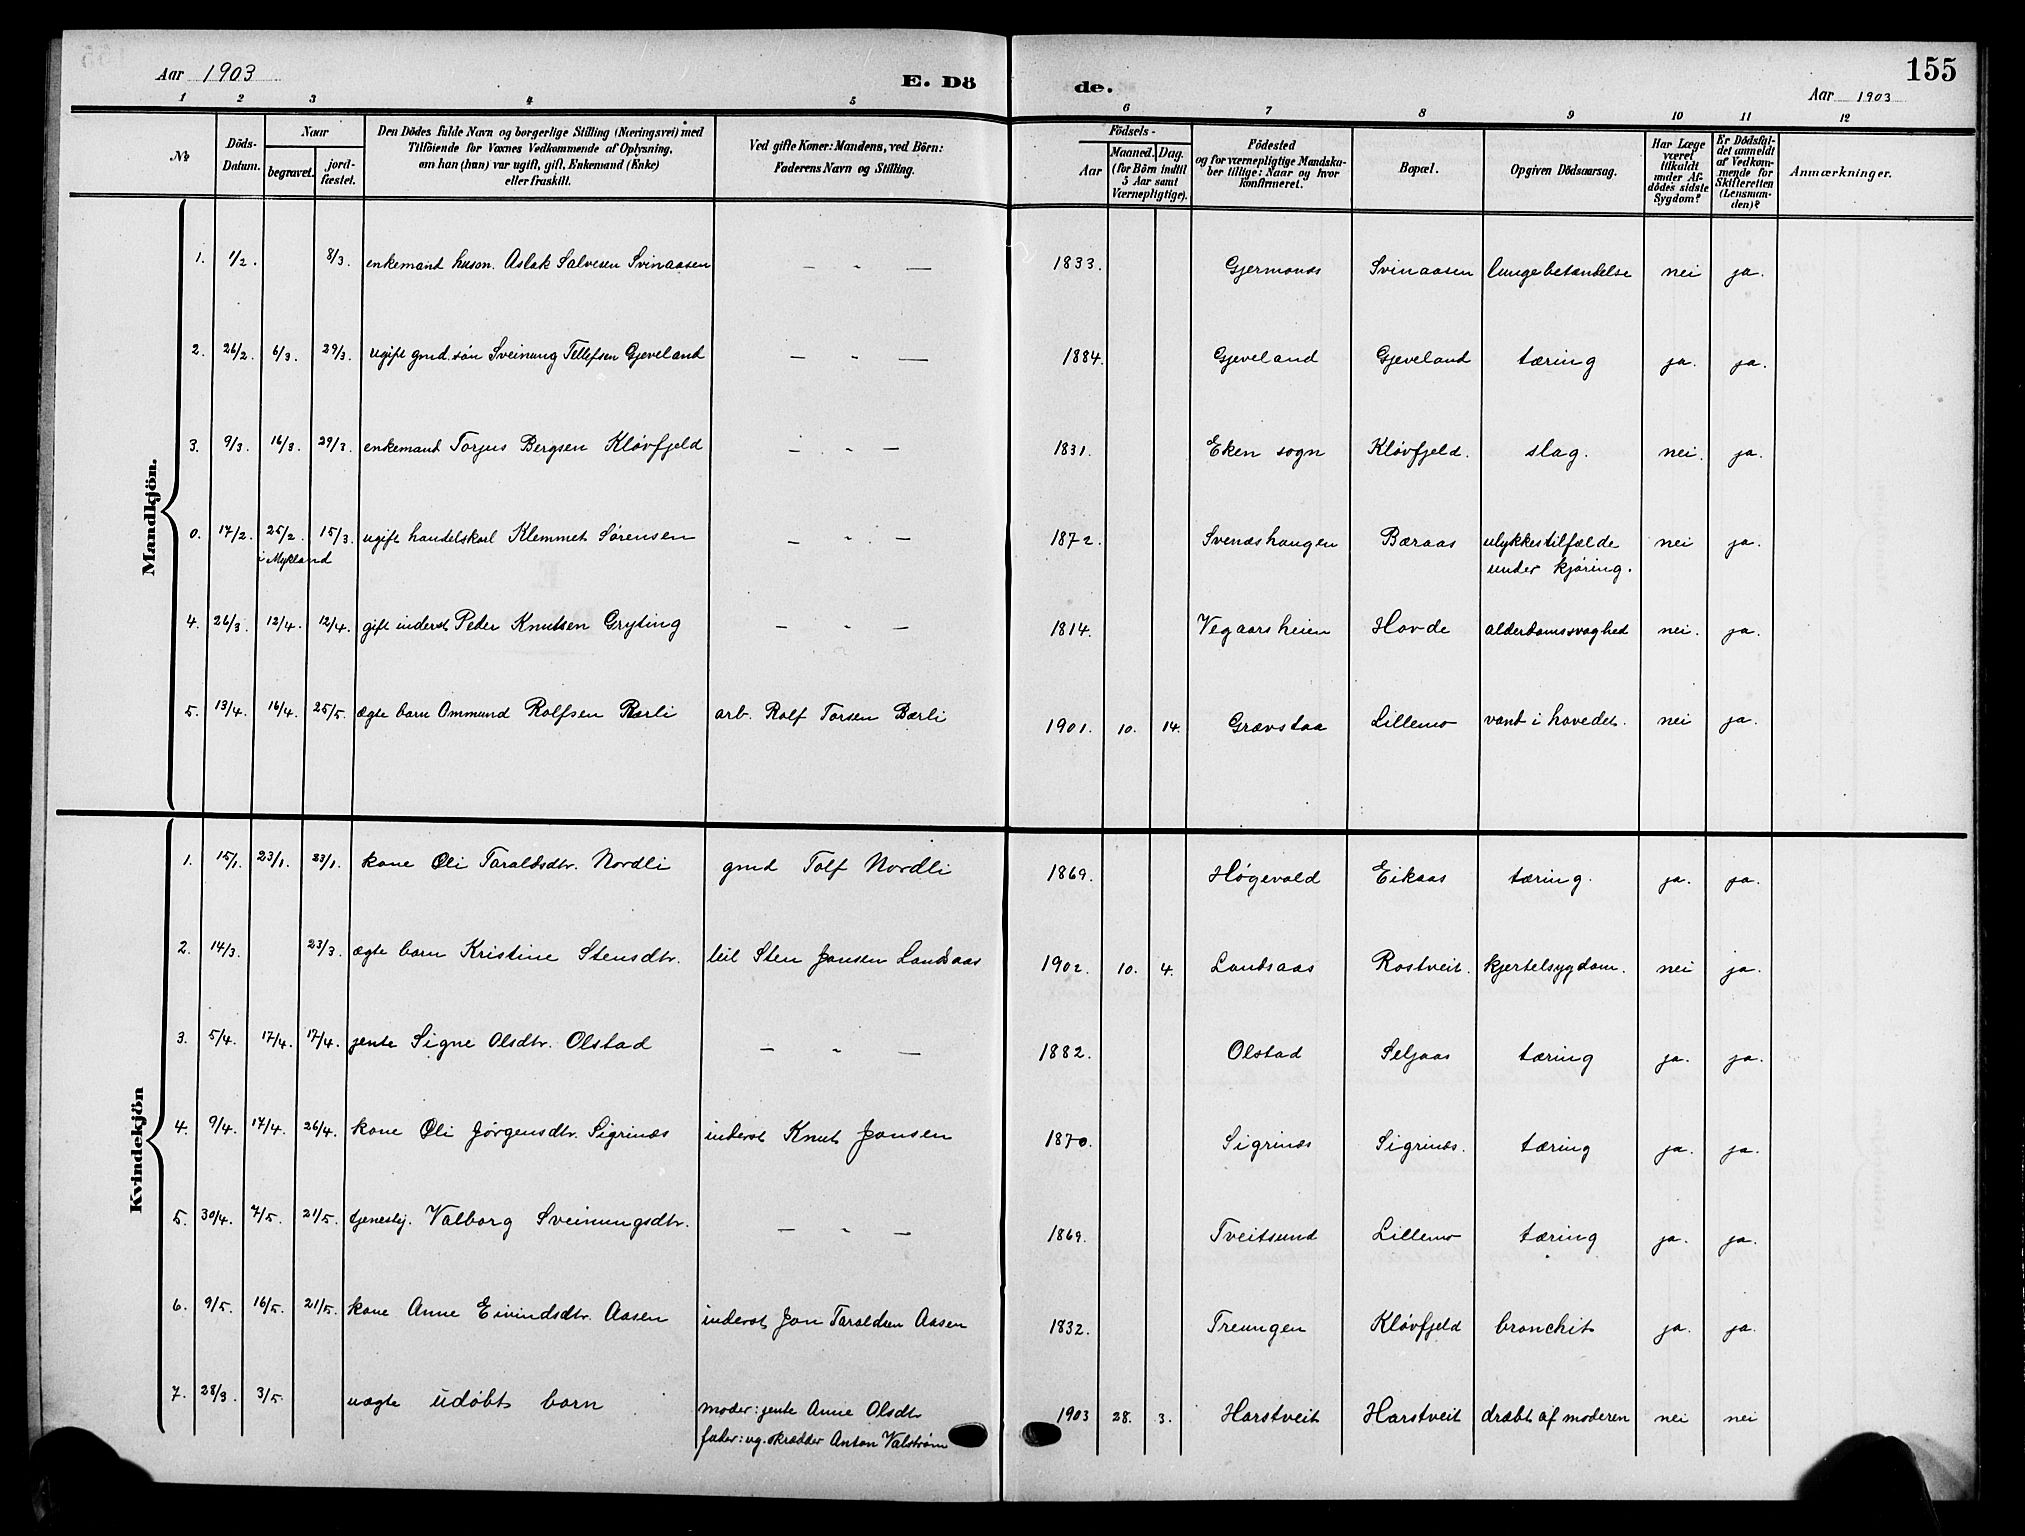 155
Aar 1903
E. Dö
de.
Aar 1903
1 2 3 4 5 6 7 8 9 10 11 12
No
Döds-Datum.
Naar
begravet.
jord-fæstet.
Den Dödes fulde Navn og borgerlige Stilling (Næringsvei) med
Tilföiende for Voxnes Vedkommende af Oplysning,
om han (hun) var ugift, gift, Enkemand (Enke)
eller fraskilt.
Ved gifte Koner: Mandens, ved Börn:
Faderens Navn og Stilling.
Födsels-
Aar
Maaned. Dag.
(for Börn indtil
5 Aar samt
Værnepligtige).
Födested
og for værnepligtige Mandska-
ber tillige: Naar og hvor
konfirmeret.
Bopæl.
Opgiven Dödsaarsag.
Har Læge
været
tilkaldt
under Af-
dödes sidste
Sygdom?
Er Dödsfal-
det anmeldt
af Vedkom-
mende for
Skifteretten
(Lensman-
den)?
Anmærkninger.
Mandkjön.
1. 1/2. 8/3. enkemand husm. Aslak Salvesen Svinaasen — " — 1833. Gjermonæs Svinaasen lungebetændelse nei ja.
2. 26/2. 6/3. 29/3. ugift gmd. søn Sveinung Tellefsen Gjeveland — " — 1884. Gjeveland Gjeveland tæring ja. ja.
3. 9/3. 16/3. 29/3. enkemand Torjus Bergsen Kløvfjeld — " — 1831. Eken sogn Kløvfjeld. slag. nei. ja.
0. 17/2. 25/2. 15/3. ugift handelskarl Klemmet Sørensen — " — 1872. Svenæshaugen Bæraas ulykkestilfælde nei ja.
i Mykland under kjøring.
4. 26/3. 12/4. 12/4. gift inderst Peder Knutsen Gryting — " — 1814. Vegaarsheien Hovde alderdomssvaghed nei. ja.
5. 13/4. 16/4. 25/5. ægte barn Ommund Rolfsen Bærli arb. Rolf Torsen Bærli 1901. 10. 14. Grævstaa Lillemo vand i hovedet. nei ja.
Kvindekjön
1. 15/1. 23/1. 23/1. kone Oli Taraldsdtr. Nordli gmd Tolf Nordli 1869. Høgevold Eikaas tæring. ja. ja.
2. 14/3. 23/3. ægte barn Kristine Stensdtr. leil Sten Jansen Landsaas 1902. 10. 4. Landsaas Rostveit. kjertelsygdom. nei ja.
3. 5/4. 17/4. 17/4. jente Signe Olsdtr. Olstad — " — 1882. Olstad Seljaas tæring ja. ja.
4. 9/4. 17/4. 26/4. kone Oli Jørgensdtr. Sigrinæs inderst Knut Jansen 1870. Sigrinæs Sigrinæs. tæring ja. ja.
5. 30/4. 7/5. 21/5. tjenestej. Valborg Sveinungsdtr. — " — 1869. Tveitsund Lillemo tæring ja. ja.
6. 9/5. 16/5. 21/5. kone Anne Eivindsdtr. Aasen inderst Jon Taraldsen Aasen 1832. Treungen Kløvfjeld bronchit ja. ja.
7. 28/3. 3/5. uægte udøbt barn moder: jente Anne Olsdtr 1903 28. 3. Harstveit Harstveit dræbt af moderen nei nei
fader: ug. skrædder Anton Valstrøm